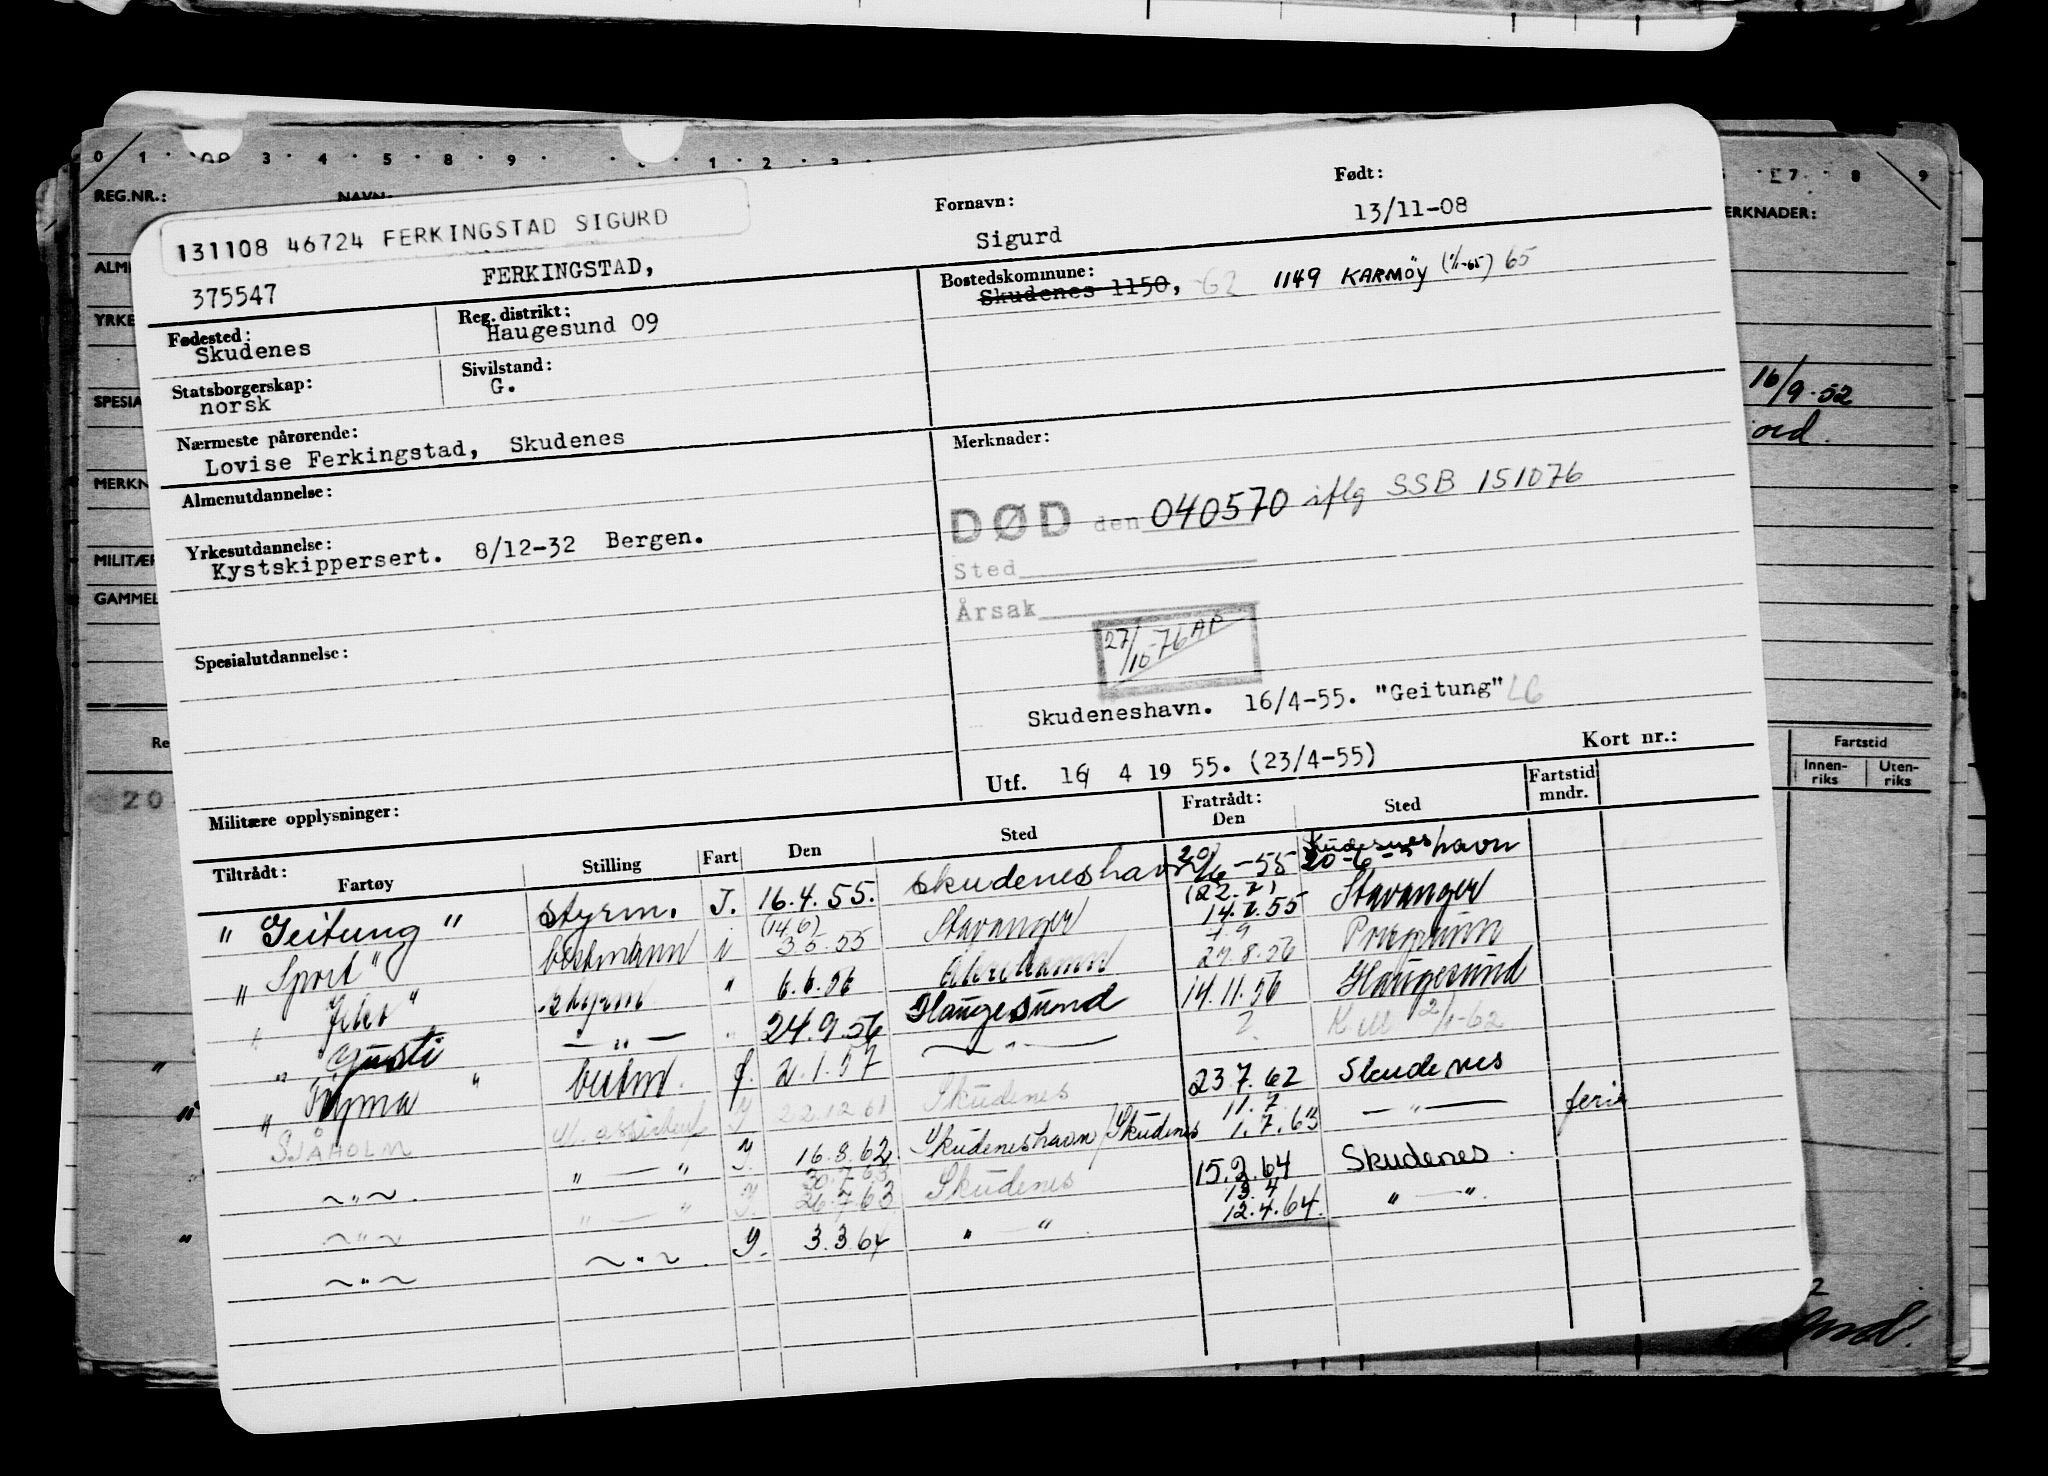 0 1 3 4 5 8 9 1 2 3 7 8 9
REG.NR.: NAVN: ERKNADER:
131108 46724 FERKINGSTAD SIGURD
Fornavn: Født:
375547 FERKINGSTAD, Sigurd 13/11-08
Fødested: Reg. distrikt: Bostedskommune:
Skudenes Haugesund 09 Skudenes 1150, 62 1149 KARMØY (1/1-65) 65
Statsborgerskap: Sivilstand:
norsk G.
Nærmeste pårørende:
Lovise Ferkingstad, Skudenes
Merknader:
Almenutdannelse:
DØD den 040570 iflg SSB 151076
Yrkesutdannelse:
Kystskippersert. 8/12-32 Bergen.
Sted
Årsak
27/10-76 AB
Spesialutdannelse:
Skudeneshavn. 16/4-55. "Geitung" LG
Utf. 16 4 19 55. (23/4-55) Kort nr.:
Militære opplysninger:
Tiltrådt: Fartøy Stilling Fart Den Sted Fratrådt: Den Sted Fartstid mndr.
"Geitung" styrm. I. 16.4.55. Skudeneshavn 20/6-55 Skudeneshavn
20-6-5
(14.6) (22.7)
"Sport" bestmann i 3 6 55 Stavanger 14.7.55 Stavanger
" " styrm " 6.6.56 29.8.56
" Gusti — " — " 24.9.56 Haugesund 14.11.56 Haugesund
" " bestm. f. 2.1.57 — " — ? 2/1-62
SJÅHOLM I 22.12.61 Skudenes 23 7. 62 Skudenes
11.7
~ " ~ " — " I. 16.8.62 Skudeneshavn/Skudenes 1.7.63 — " — ferie
30.7.63
~ " ~ " — " I. 26.7.63 Skudenes 15.2.64 Skudenes.
13.4
~ " ~ ~ " ~ I. 3.3.64 " — " 12.4.64. " — "
ALM
YRKE
SPESIA
MERKN
MILITÆR
GAMMEL
Re
20
16/9-52
Fartstid
Innen-riks Uten-riks